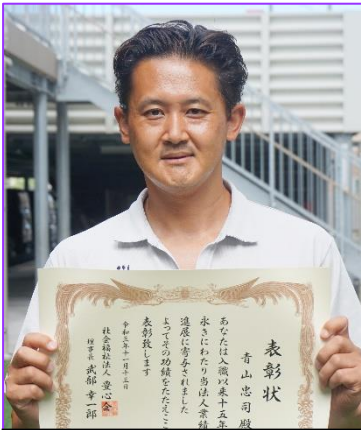 表彰状
青山忠司殿
あなたは入職以来十五年
永きにわたり当法人業績
進展に寄与されました
よってその功績をたたえここ
表彰致します
令和三年十一月十三日
社会福祉法人 豊心会
理事長 武部幸一郎